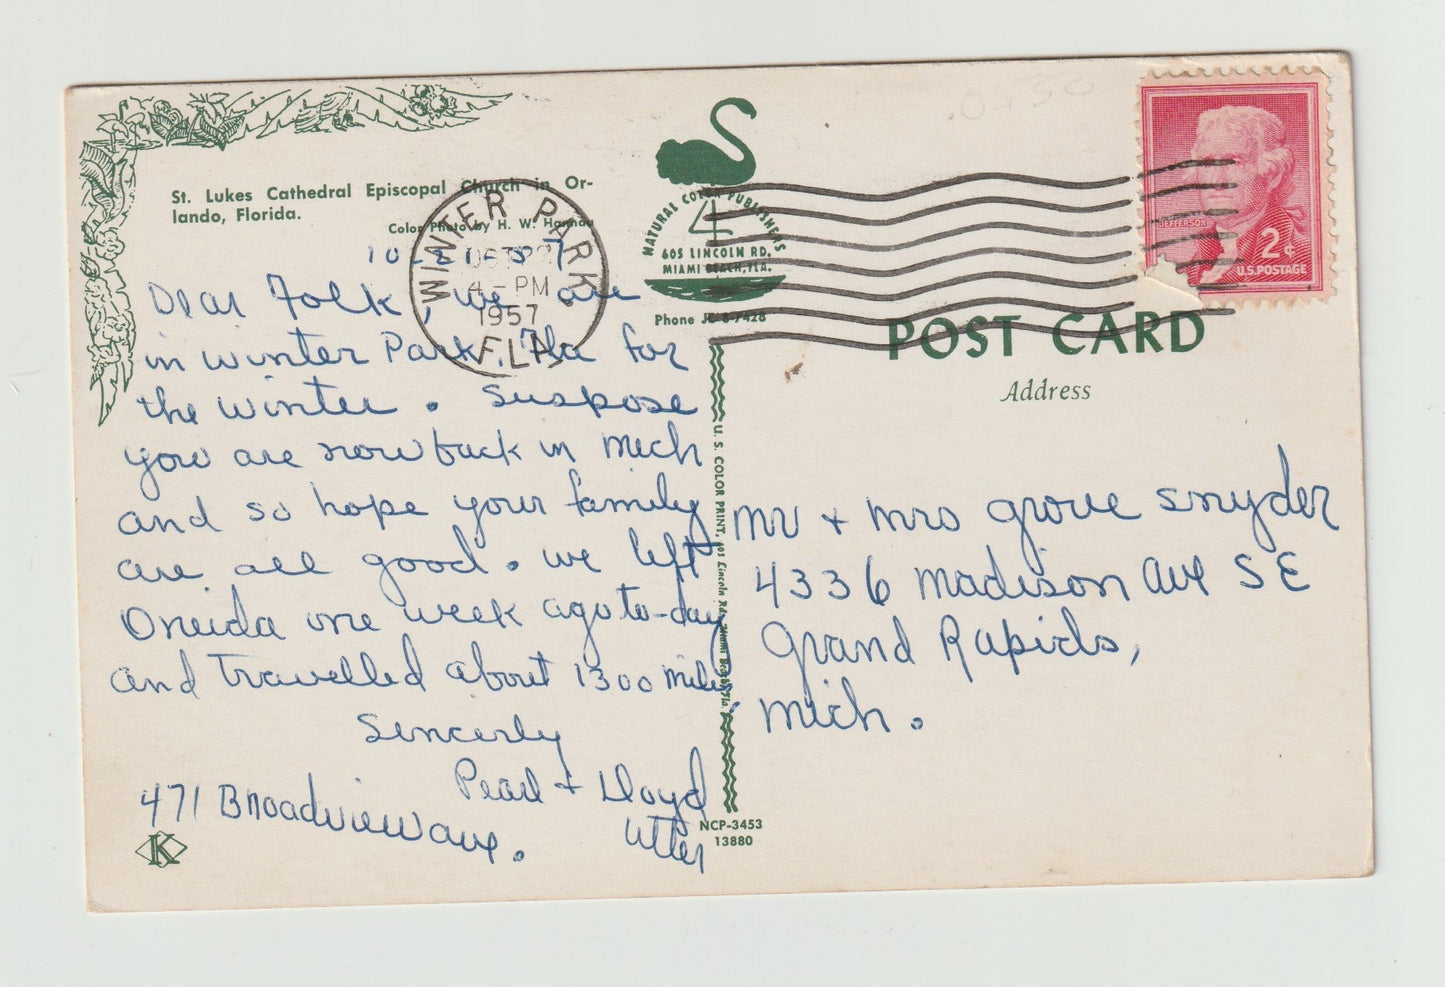 St. Lukes Cathedral Episcopal Church in Or-
lando, Florida.
Color Photo by H. W. Hannau
10-21-57
Dear Folk, we are
in winter Park, Fla for
the winter. Suspose
you are now back in Mich
and so hope your family
are all good. we left
Oneida one week ago to-day
and travelled about 1300 miles.
Sincerly
Pearl + Lloyd
Utter
471 Broadview ave.
K
WINTER PARK
4 - PM
1957
FLA.
NATURAL COLOR PUBLISHERS
4
605 LINCOLN RD.
MIAMI BEACH, FLA.
Phone JE 8-7428
U. S. COLOR PRINT, 605 Lincoln Rd., Miami Beach, Fla.
NCP-3453
13880
JEFFERSON
2¢
U.S. POSTAGE
POST CARD
Address
Mr + Mrs Grove Snyder
4336 Madison Ave S E
Grand Rapids,
Mich.